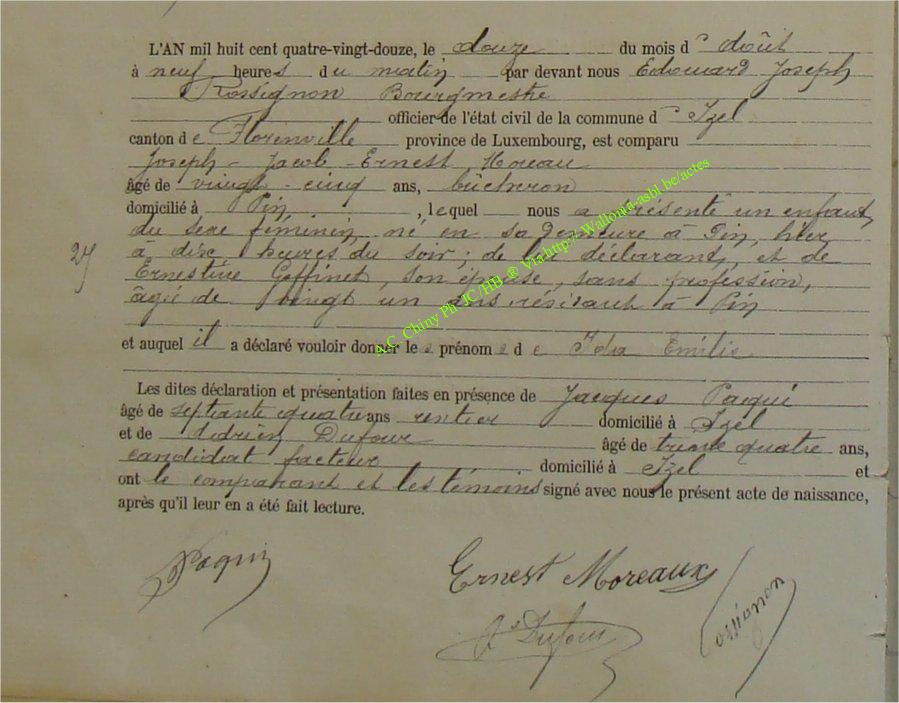 L'AN mil huit cent quatre-vingt-douze, le douze du mois d'août
à neuf heures du matin par devant nous Edouard Joseph
Rossignon Bourgmestre
officier de l'état civil de la commune d'Izel
canton de Florenville province de Luxembourg, est comparu
Joseph-Jacob-Ernest Moreau
âgé de vingt-cinq ans, bûcheron
domicilié à Pin, lequel nous a présenté un enfant
du sexe féminin, né en sa demeure à Pin, hier
27
à dix heures du soir; de lui déclarant, et de
Ernestine Goffinet, son épouse, sans profession,
âgée de vingt un ans résidant à Pin
et auquel il a déclaré vouloir donner les prénoms de Ida Emilie
Les dites déclaration et présentation faites en présence de Jacques Paqui
âgé de septante quatre ans rentier domicilié à Izel
et de Adrien Dufour âgé de trente quatre ans,
candidat facteur domicilié à Izel et
ont le comparant et les témoins signé avec nous le présent acte de naissance,
après qu'il leur en a été fait lecture.
A.C. Chiny Ph JC /HB ® Via http://Wallonia-asbl.be/actes
Paqui
Ernest Moreaux
Dufour
Rossignon